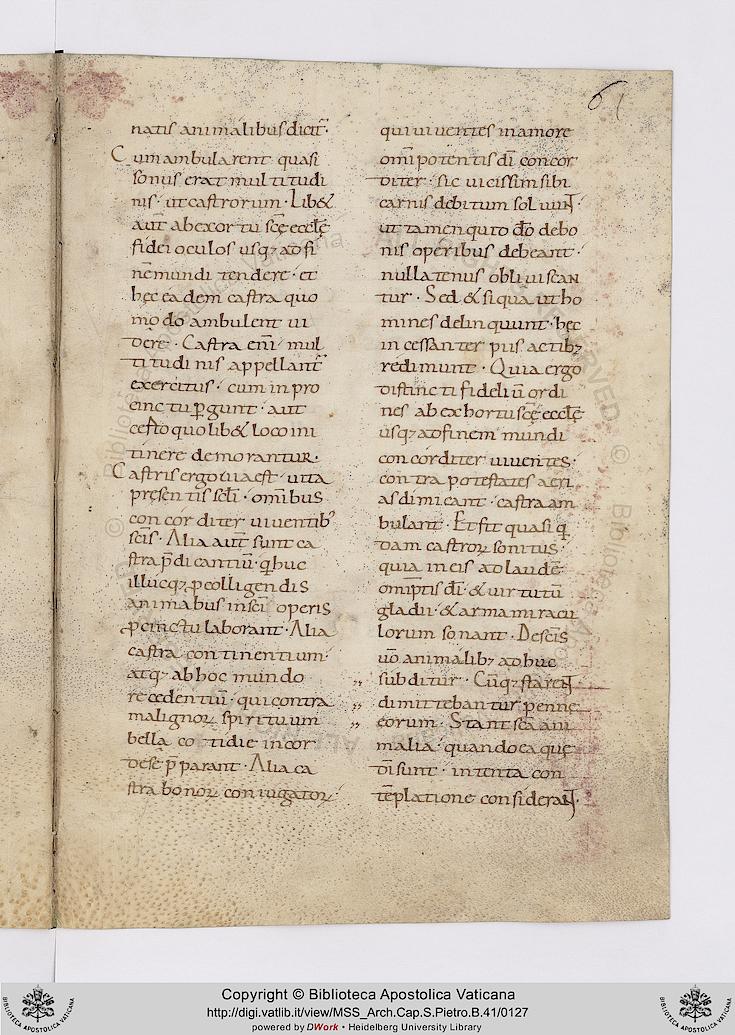 61
natis animalibus dicit̄·
Cum ambularent quasi
sonus erat multitudi
nis· ut castrorum· Lib&
aut̄ ab exortu scę eccłę
fidei oculos usq; ad fi
nē mundi tendere· et
hęc eadem castra quo
modo ambulent ui
dere· Castra eni̅ mul
titudinis appellant̄
exercitus· cum in pro
cinctu ꝑgunt· aut
certo quolib& loco iti
tinere demorantur·
Castris ergo uia est uita
pręsentis sęli· omībus
concorditer uiuentib;
scīs· Alia aut̄ sunt ca
stra p̄dicantiū· q̄ huc
illucq; ꝑ colligendis
animabus in scī operis
ꝓcinctu laborant· Alia
castra continentium·
atq; ab hoc mundo
recedentiū· qui contra
malignoꝝ spirituum
bella cotidie in cor
de se p̄parant· Alia ca
stra bonoꝝ coniugatoꝝ·
qui uiuentes in amore
omīpotentis dī concor
diter· sic uicissim sibi
carnis debitum soluunt
ut tamen quid dō de bo
nis operibus debeant·
nullatenus obliuiscan
tur· Sed & si qua ut ho
mines delinquunt· hęc
incessanter piis actib;
redimunt· Quia ergo
distincti fideliū ordi
nes ab exhortu scę eccłę
usq; ad finem mundi
concorditer uiuentes·
contra potestates aeri
as dimicant· castra am
bulant· Et fit quasi q̄
dam castroꝝ sonitus·
quia in eis ad laudē
omīptis dī· & uirtutū
gladii· & arma miracu
lorum sonant· De scīs
uō animalib; adhuc
„ subditur· Cūq; starent
„ dimittebantur pennę
„ eorum· Stant scā ani
malia· quando ea quę
dī sunt· intenta con
tēplatione considerant·
Copyright © Biblioteca Apostolica Vaticana
http://digi.vatlib.it/view/MSS_Arch.Cap.S.Pietro.B.41/0127
powered by DWork • Heidelberg University Library